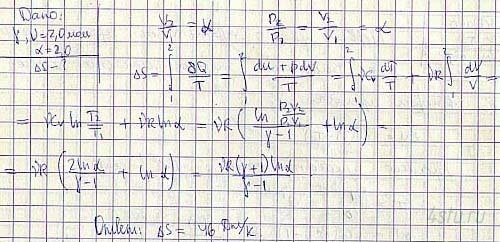 Дано:
γ, ν = 2,0 моль
α = 2,0
ΔS - ?
V₂/V₁ = α
p₂/p₁ = V₂/V₁ = α
ΔS = ∫₁² δQ/T = ∫₁² (dU + pdV)/T = ∫₁² νCv dT/T + νR ∫₁² dV/V =
= νCv ln T₂/T₁ + νR lnα = νR ( ln(p₂V₂/p₁V₁)/(γ-1) + lnα ) =
= νR ( 2lnα/(γ-1) + lnα ) = νR(γ+1)lnα/(γ-1)
Ответ: ΔS = 46 Дж/К